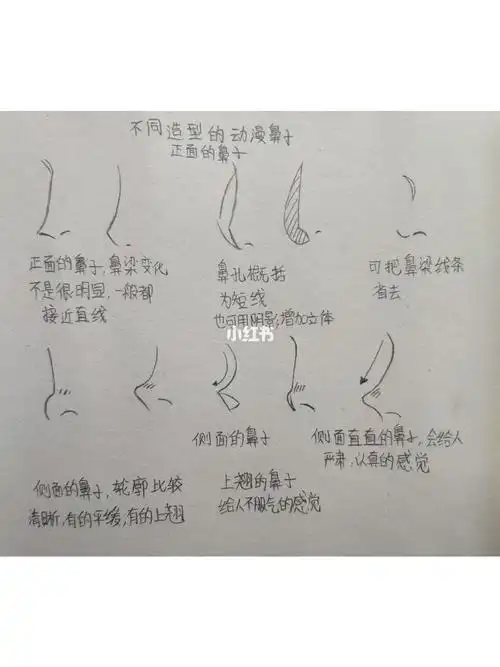 不同造型的动漫鼻子
正面的鼻子
正面的鼻子,鼻梁变化
不是很明显,一般都
接近直线
鼻孔概括
为短线
也可用阴影,增加立体
可把鼻梁线条
省去
小红书
侧面的鼻子
侧面直直的鼻子,会给人
严肃,认真的感觉
侧面的鼻子,轮廓比较
清晰,有的平缓,有的上翘
上翘的鼻子
给人不服气的感觉